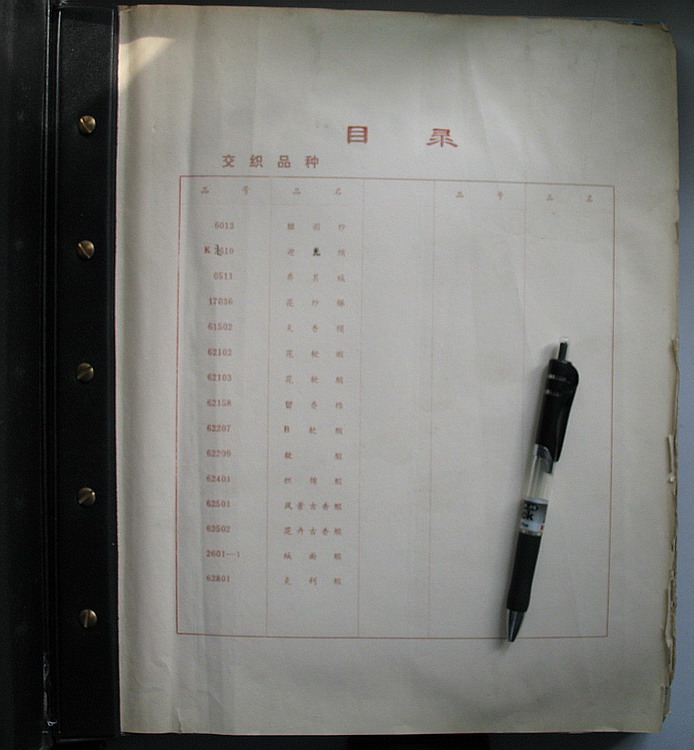 目 录
交织品种
品 号 品 名 品 号 品 名
6013
K
0511
17036 花
61502 天香绸
62102 花软缎
62103 花软缎
62158 留香绉
62207 B 软缎
62209 软 缎
62401 织锦缎
62501 风景古香缎
62502 花卉古香缎
2601—1
62801 克利缎